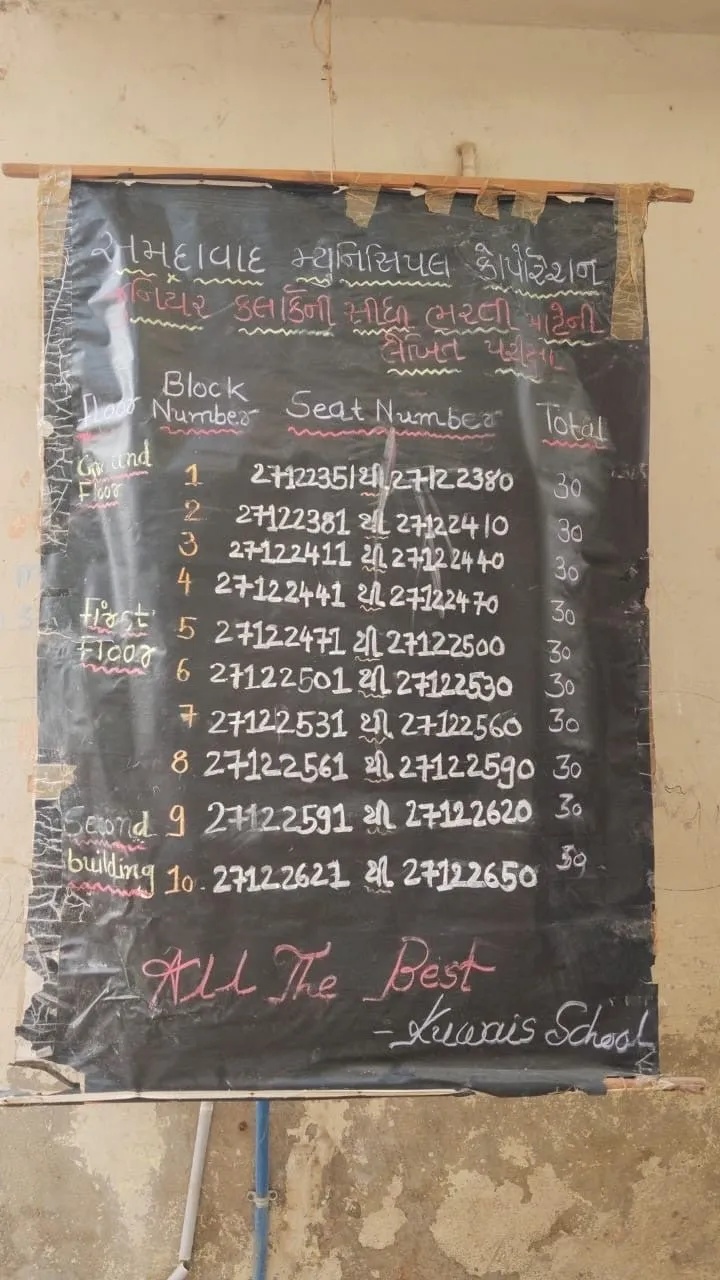 અમદાવાદ મ્યુનિસિપલ કોર્પોરેશન
જુનિયર કલાર્કની સીધી ભરતી માટેની
લેખિત પરીક્ષા
Floor Block Number Seat Number Total
Ground Floor 1 27122351 થી 27122380 30
2 27122381 થી 27122410 30
3 27122411 થી 27122440 30
4 27122441 થી 27122470 30
First Floor 5 27122471 થી 27122500 30
6 27122501 થી 27122530 30
7 27122531 થી 27122560 30
8 27122561 થી 27122590 30
Second building 9 27122591 થી 27122620 30
10. 27122621 થી 27122650 30
All The Best
- Kuwais School